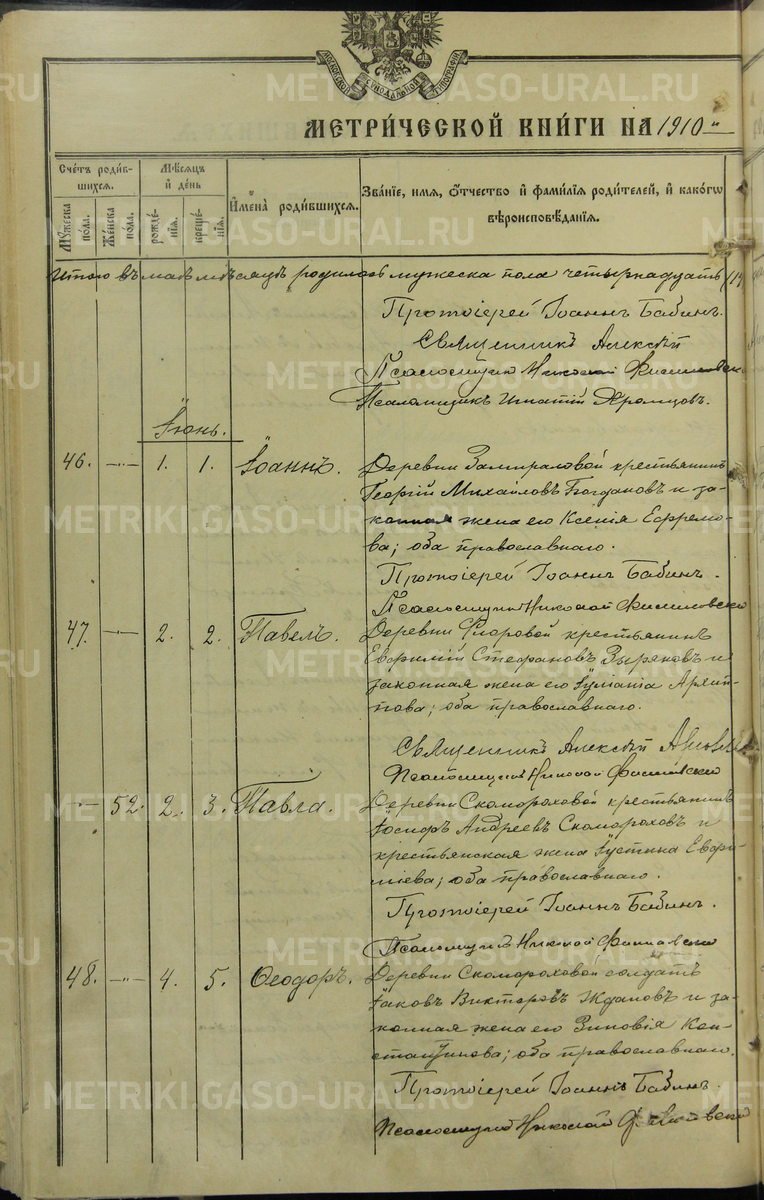 МОСКОВСКОЙ СѴНОДАЛЬНОЙ ТИПОГРАФІИ
МЕТРИ́ЧЕСКОЙ КНИ́ГИ НА 1910 й
Счétъ роди́вшихся.
Мѣ́сяцъ и҆ де́нь
И҆мена̀ роди́вшихся.
Зва́нїе, и҆́мѧ, ѻ҆́тчество и҆ фами́лїѧ роди́телей, и҆ како́гѡ вѣроисповѣ́данїѧ.
Мꙋ́жеска по́ла.
Же́нска по́ла.
рожде́нїѧ.
креще́нїѧ.
Итого въ маѣ мѣсяцѣ родилось мужеска пола четырнадцать
Протоіерей Іоаннъ Бабинъ.
Священникъ Алексѣй
Псаломщикъ Николай
Псаломщикъ Игнатій Хромцовъ.
Іюнь.
46. — 1. 1. Іоаннъ. Деревни Замираловой крестьянинъ
Георгій Михайловъ Богдановъ и за-
конная жена его Ксенія Ефремо-
ва; оба православнаго.
Протоіерей Іоаннъ Бабинъ.
Псаломщикъ Николай
47. — 2. 2. Павелъ. Деревни Фларовой крестьянинъ
Евфимій Стефановъ Зыряновъ и
законная жена его Іуліанія Архип-
пова; оба православнаго.
Священникъ Алексѣй
Псаломщикъ Николай
— 52. 2. 3. Павла. Деревни Скомороховой крестьянинъ
Іосифъ Андреевъ Скомороховъ и
крестьянская жена Іустина Евфи-
міева; оба православнаго.
Протоіерей Іоаннъ Бабинъ.
Псаломщикъ Николай
48. — 4. 5. Ѳеодоръ. Деревни Скомороховой солдатъ
Іаковъ Викторовъ Ждановъ и за-
конная жена его Зиновія Кон-
стантинова; оба православнаго.
Протоіерей Іоаннъ Бабинъ.
Псаломщикъ Николай
METRIKI.GASO-URAL.RU